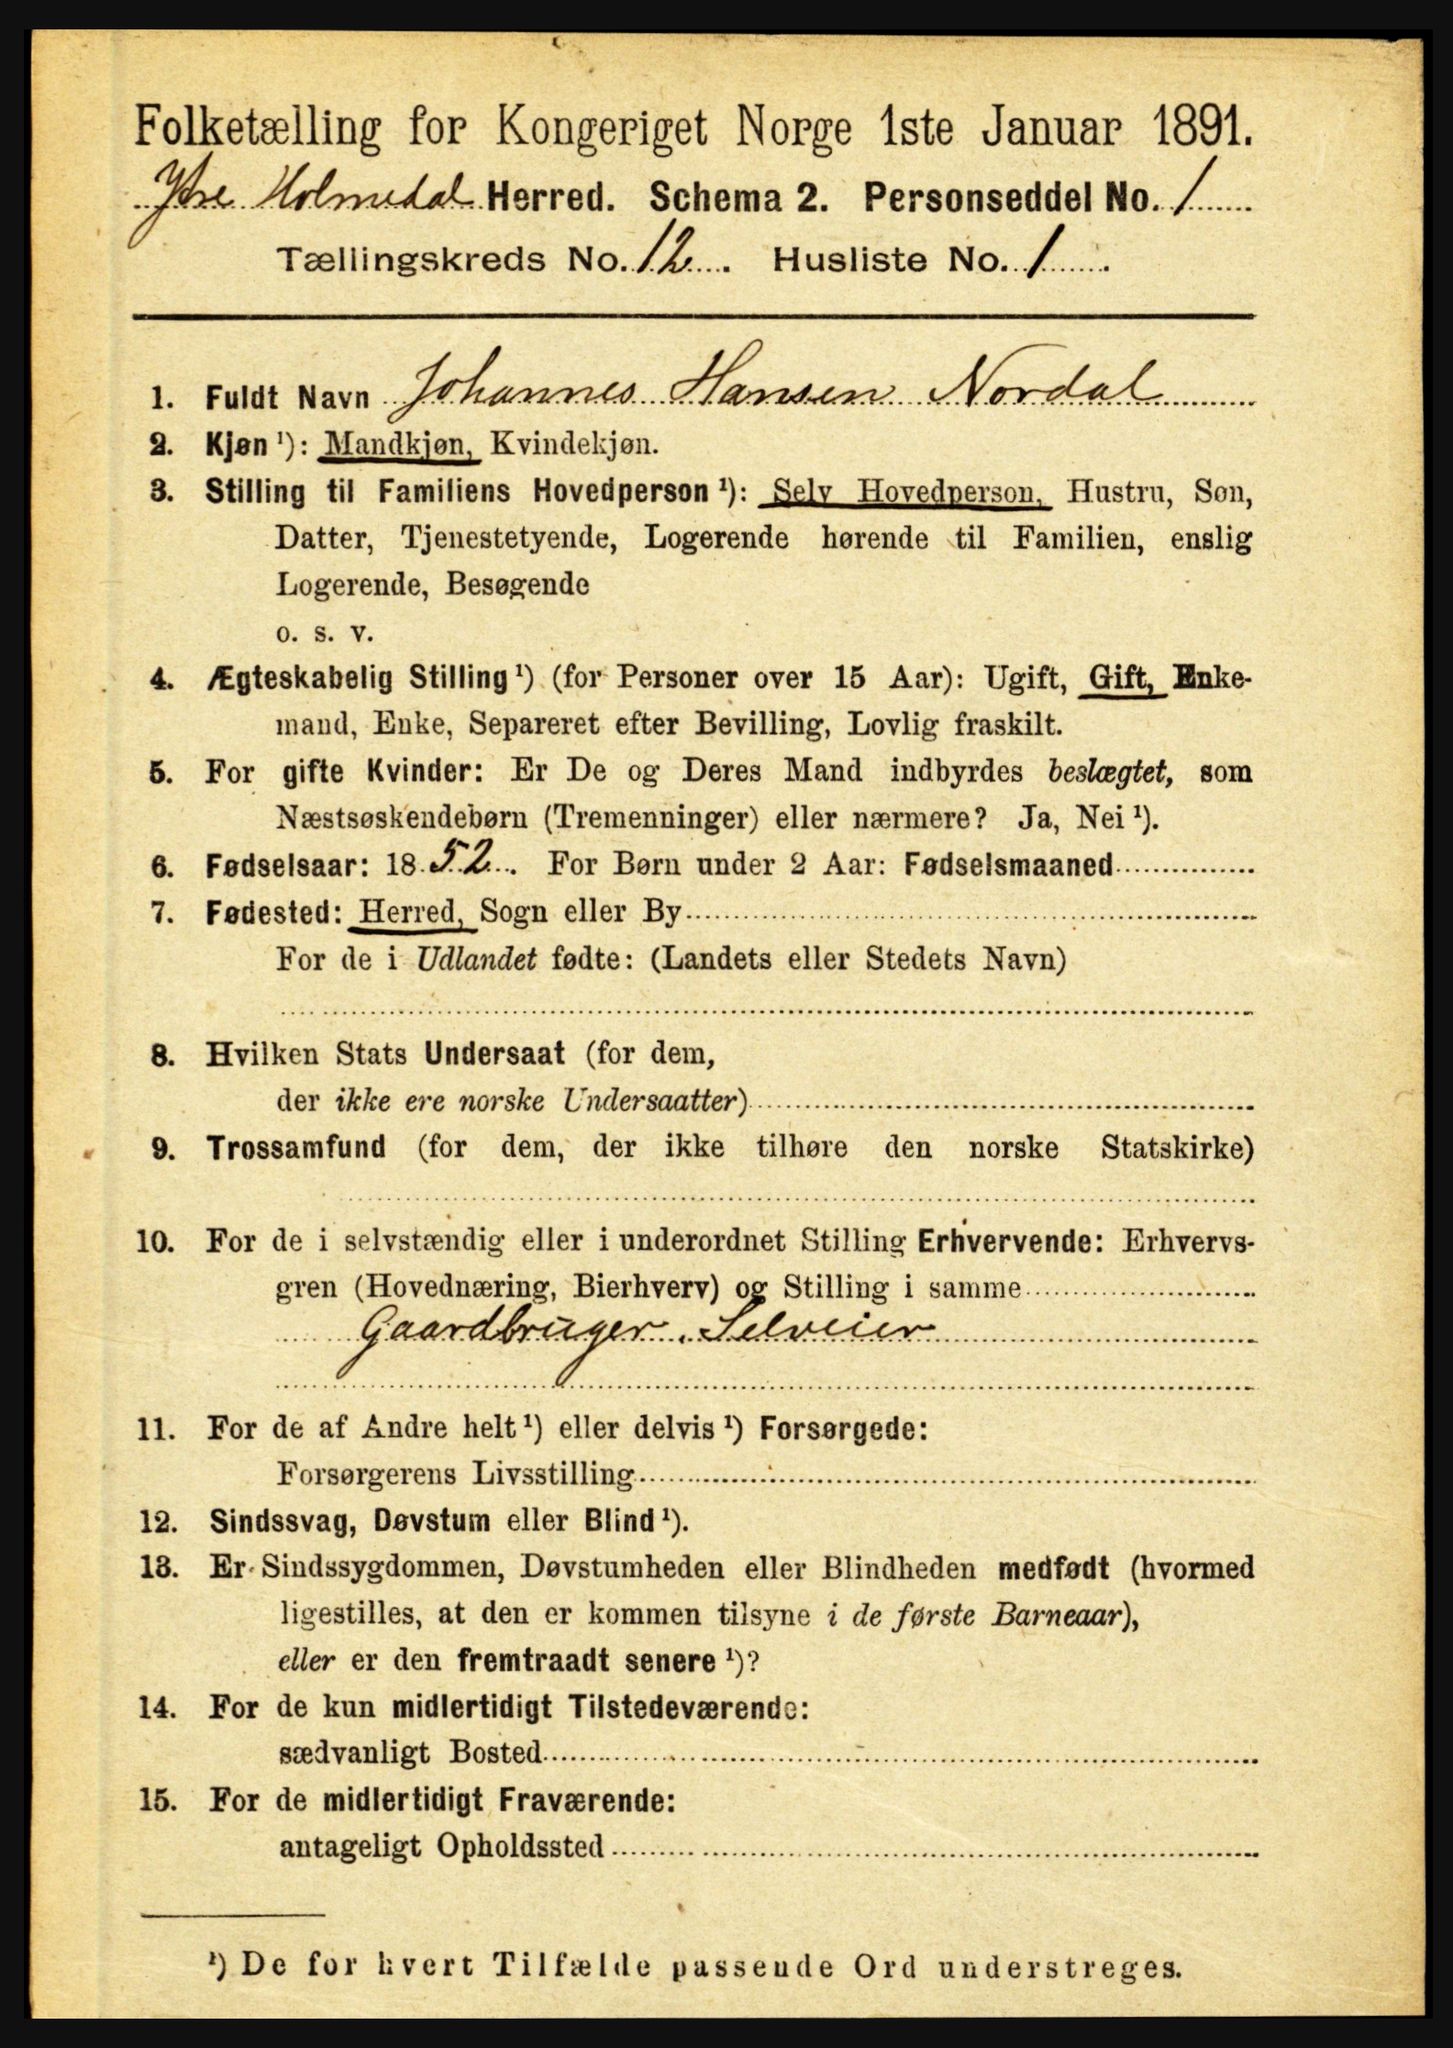 Folketælling for Kongeriget Norge 1ste Januar 1891.
Ytre Holmedal Herred. Schema 2. Personseddel No. 1
Tællingskreds No. 12. Husliste No. 1
1. Fuldt Navn Johannes Hansen Nordal
2. Kjøn ¹): Mandkjøn, Kvindekjøn.
3. Stilling til Familiens Hovedperson ¹): Selv Hovedperson, Hustru, Søn,
Datter, Tjenestetyende, Logerende hørende til Familien, enslig
Logerende, Besøgende
o. s. v.
4. Ægteskabelig Stilling ¹) (for Personer over 15 Aar): Ugift, Gift, Enke-
mand, Enke, Separeret efter Bevilling, Lovlig fraskilt.
5. For gifte Kvinder: Er De og Deres Mand indbyrdes beslægtet, som
Næstsøskendebørn (Tremenninger) eller nærmere? Ja, Nei ¹).
6. Fødselsaar: 1852. For Børn under 2 Aar: Fødselsmaaned
7. Fødested: Herred, Sogn eller By
For de i Udlandet fødte: (Landets eller Stedets Navn)
8. Hvilken Stats Undersaat (for dem,
der ikke ere norske Undersaatter)
9. Trossamfund (for dem, der ikke tilhøre den norske Statskirke)
10. For de i selvstændig eller i underordnet Stilling Erhvervende: Erhvervs-
gren (Hovednæring, Bierhverv) og Stilling i samme
Gaardbruger. Selveier
11. For de af Andre helt ¹) eller delvis ¹) Forsørgede:
Forsørgerens Livsstilling
12. Sindssvag, Døvstum eller Blind ¹).
13. Er Sindssygdommen, Døvstumheden eller Blindheden medfødt (hvormed
ligestilles, at den er kommen tilsyne i de første Barneaar),
eller er den fremtraadt senere ¹)?
14. For de kun midlertidigt Tilstedeværende:
sædvanligt Bosted
15. For de midlertidigt Fraværende:
antageligt Opholdssted
¹) De for hvert Tilfælde passende Ord understreges.